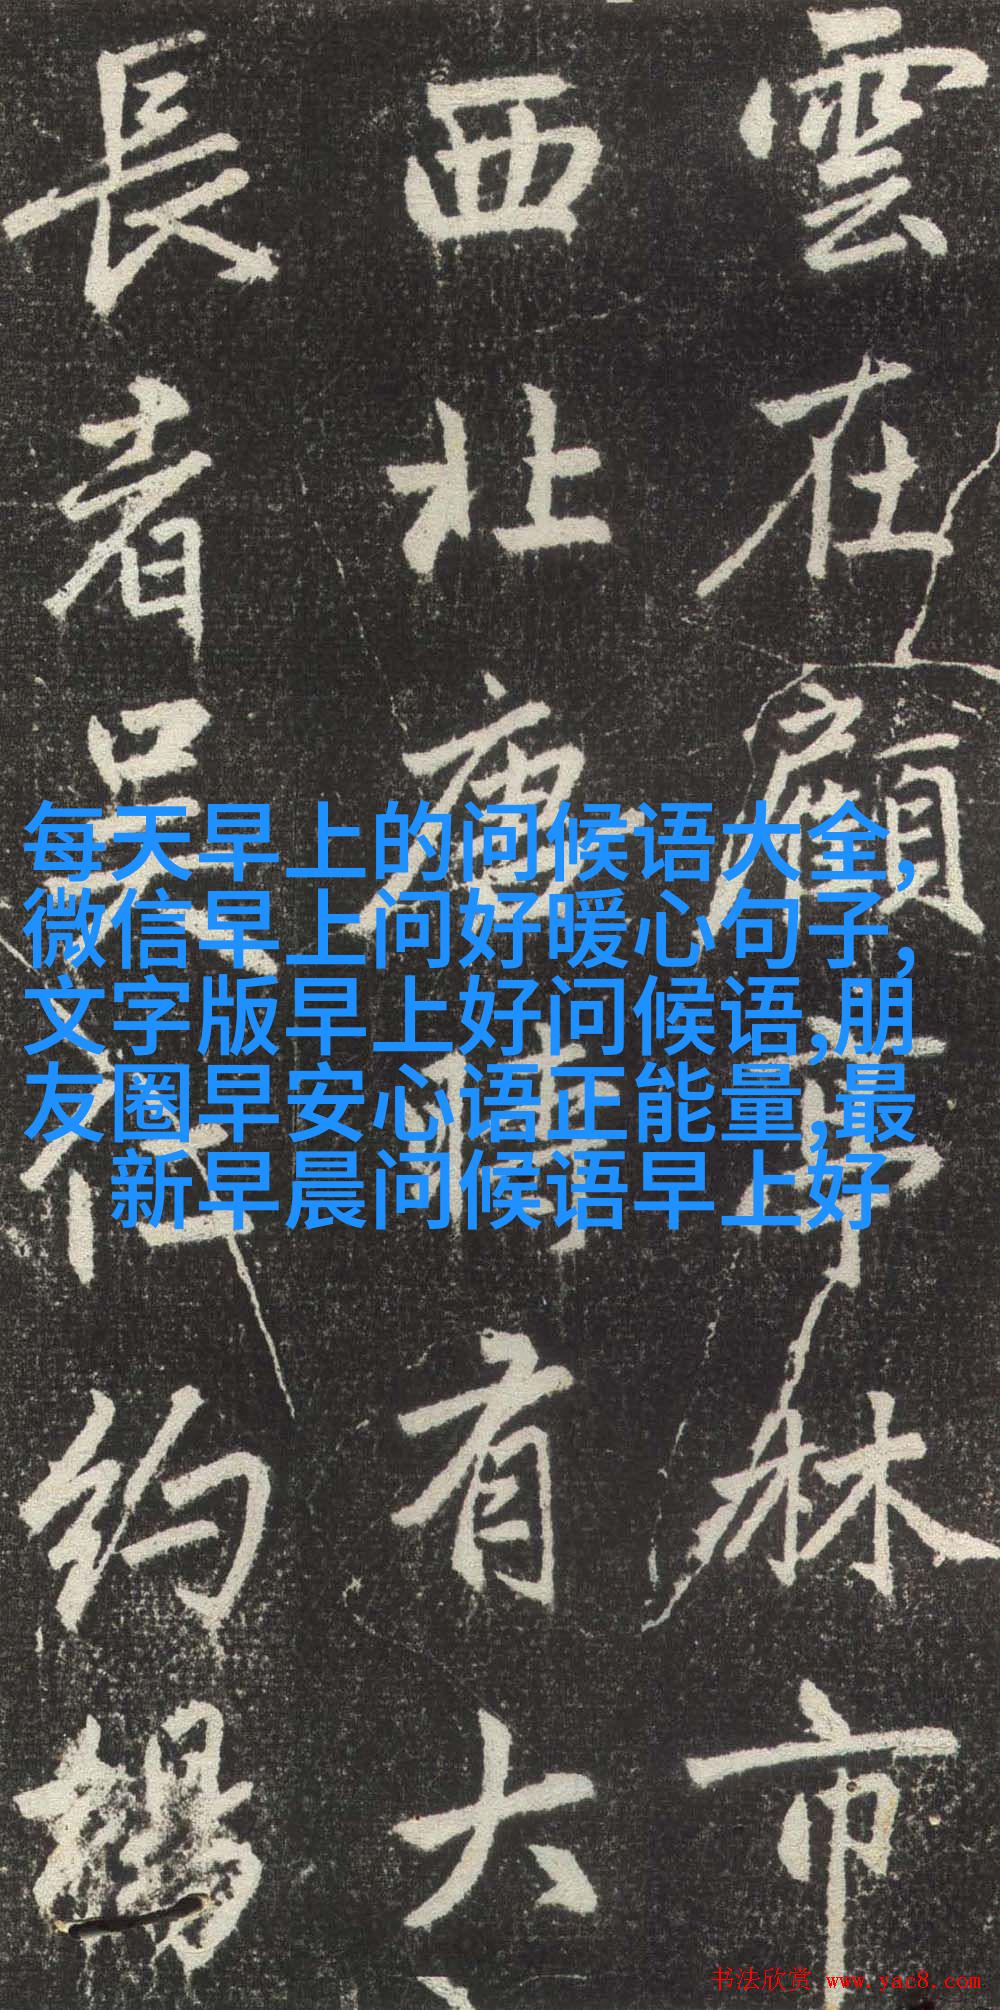 雲在顧亭林市
西北庚時有大
長者吳 約楊
每天早上的问候语大全,
微信早上问好暖心句子,
文字版早上好问候语,朋
友圈早安心语正能量,最
新早晨问候语早上好
书法欣赏 www.yac8.com